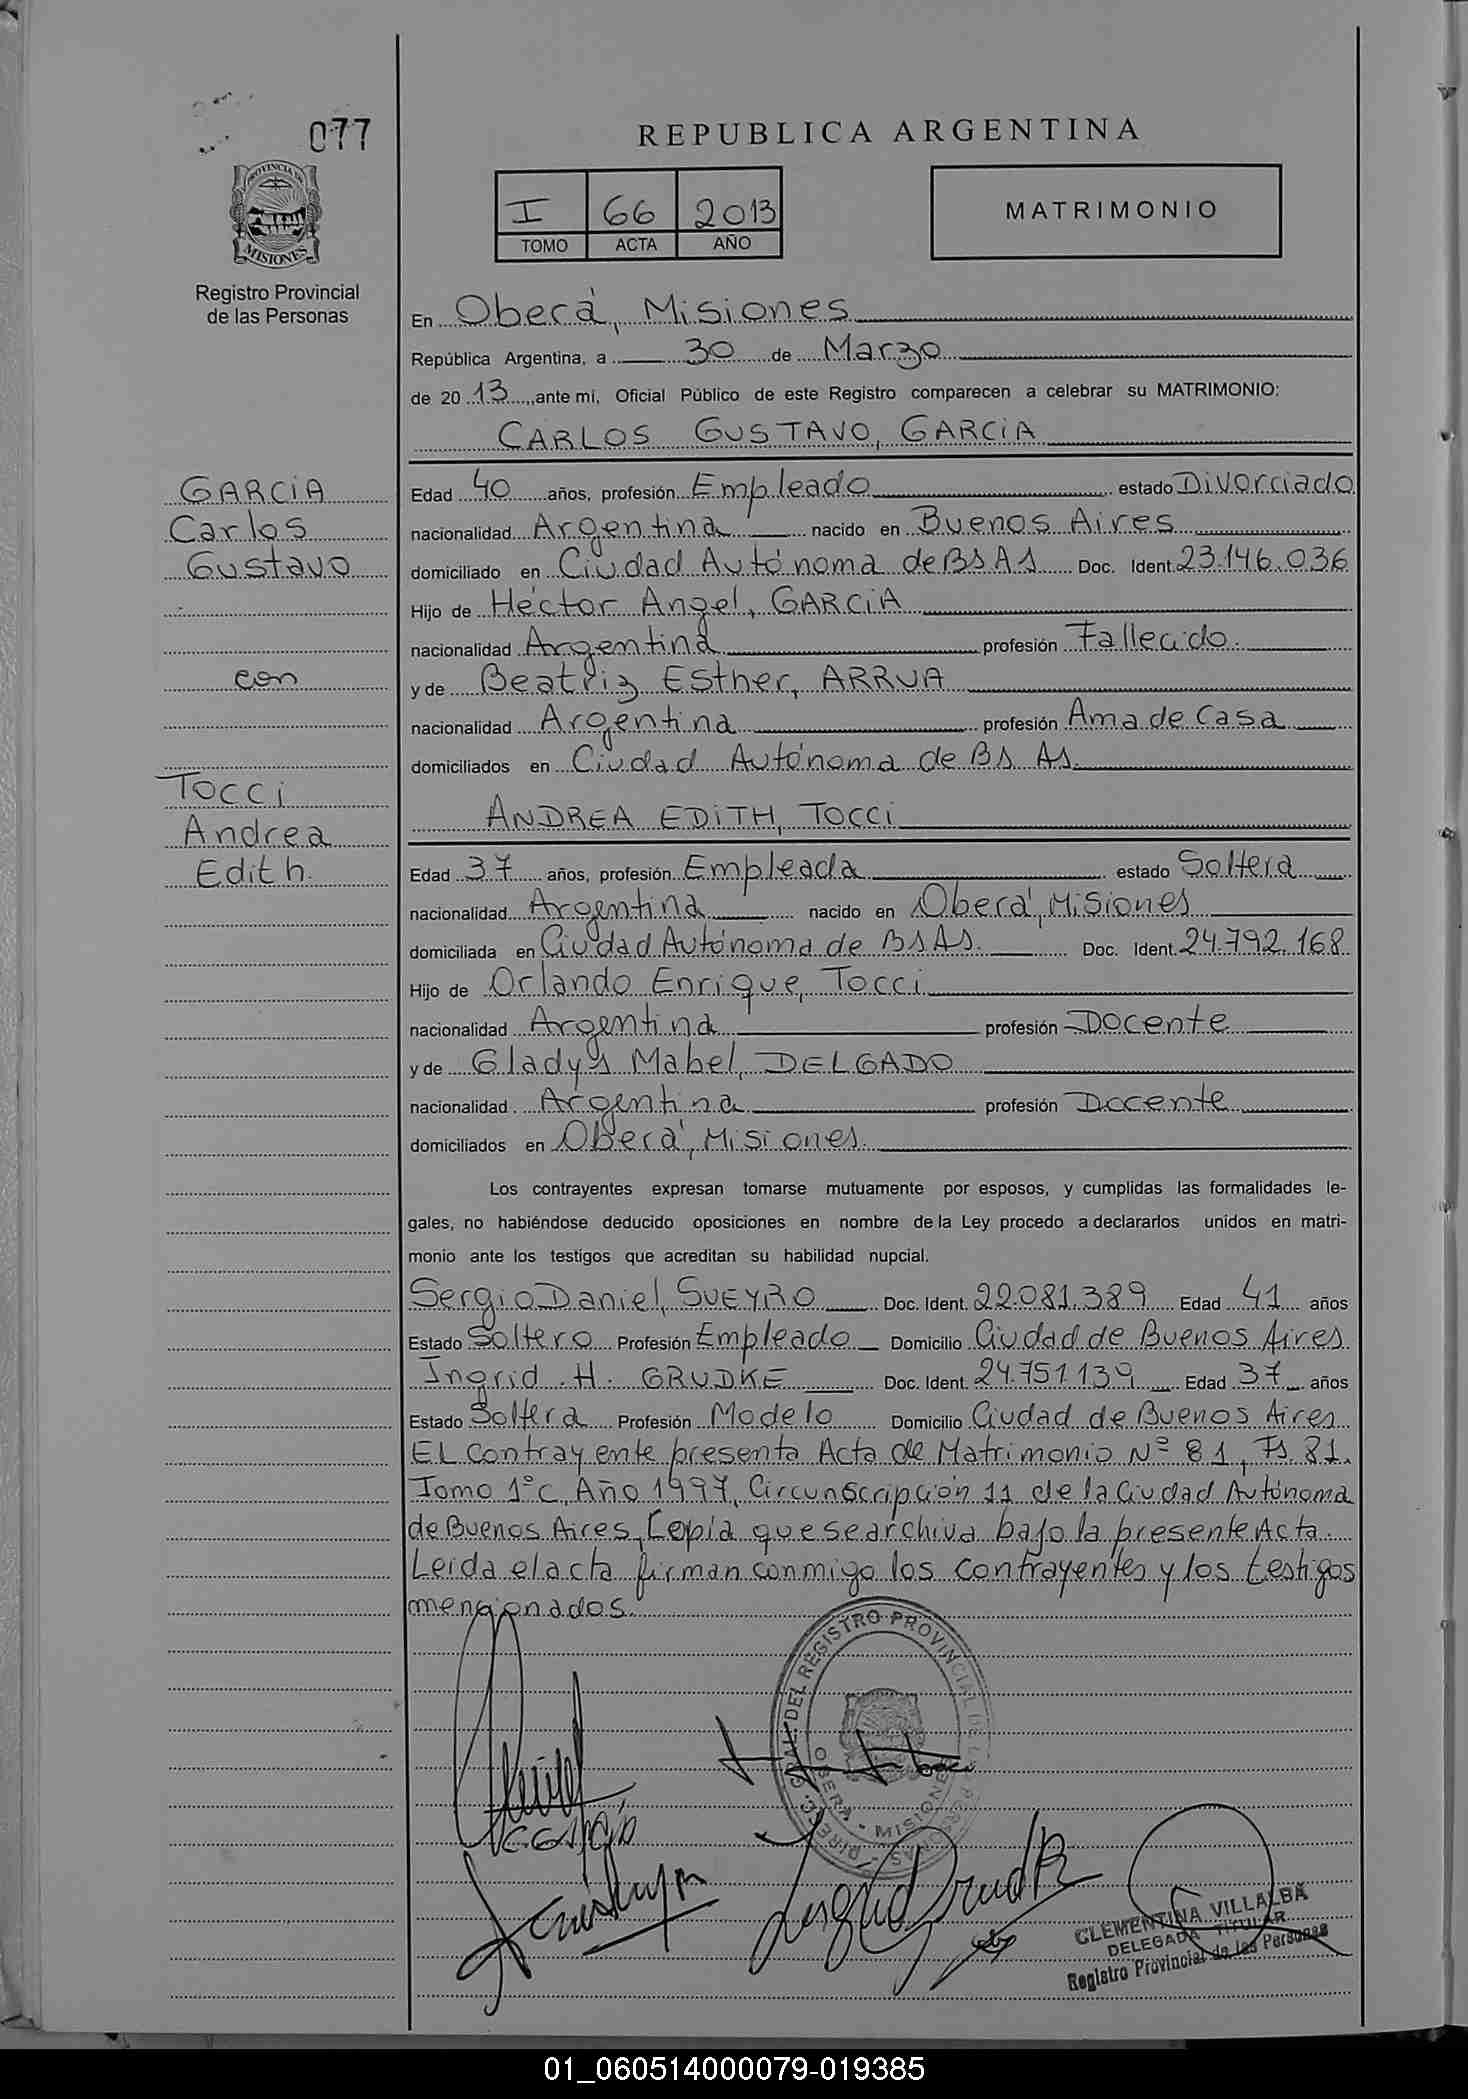 077
PROVINCIA DE
MISIONES
Registro Provincial
de las Personas
REPUBLICA ARGENTINA
I 66 2013
TOMO ACTA AÑO
MATRIMONIO
En Oberá, Misiones
República Argentina, a 30 de Marzo
de 2013, ante mi, Oficial Público de este Registro comparecen a celebrar su MATRIMONIO:
CARLOS GUSTAVO, GARCIA
GARCIA
Carlos
Gustavo
con
Tocci
Andrea
Edith.
Edad 40 años, profesión Empleado estado Divorciado
nacionalidad Argentina nacido en Buenos Aires
domiciliado en Ciudad Autónoma de BS AS Doc. Ident. 23.146.036
Hijo de Héctor Angel, GARCIA
nacionalidad Argentina profesión Fallecido.
y de Beatriz Esther, ARRUA
nacionalidad Argentina profesión Ama de Casa
domiciliados en Ciudad Autónoma de BS AS.
ANDREA EDITH, TOCCI
Edad 37 años, profesión Empleada estado Soltera
nacionalidad Argentina nacido en Oberá, Misiones
domiciliada en Ciudad Autónoma de BS AS. Doc. Ident. 24.792.168
Hijo de Orlando Enrique, Tocci
nacionalidad Argentina profesión Docente
y de Gladys Mabel, DELGADO
nacionalidad Argentina profesión Docente
domiciliados en Oberá, Misiones.
Los contrayentes expresan tomarse mutuamente por esposos, y cumplidas las formalidades le-
gales, no habiéndose deducido oposiciones en nombre de la Ley procedo a declararlos unidos en matri-
monio ante los testigos que acreditan su habilidad nupcial.
Sergio Daniel, SUEYRO Doc. Ident. 22.081.389 Edad 41 años
Estado Soltero Profesión Empleado Domicilio Ciudad de Buenos Aires
Ingrid .H. GRUDKE Doc. Ident. 24.751.139 Edad 37 años
Estado Soltera Profesión Modelo Domicilio Ciudad de Buenos Aires
El Contrayente presenta Acta de Matrimonio Nº 81, Fs. 81.
Tomo 1ºC, Año 1997, Circunscripción 11 de la Ciudad Autónoma
de Buenos Aires, Copia que se archiva bajo la presente Acta.
Leida el acta firman conmigo los contrayentes y los testigos
mencionados.
DIRECC. GRAL. DEL REGISTRO PROVINCIAL DE LAS PERSONAS
OBERA - MISIONES
Ingrid Grudke
CLEMENTINA VILLALBA
DELEGADA TITULAR
Registro Provincial de las Personas
01_060514000079-019385